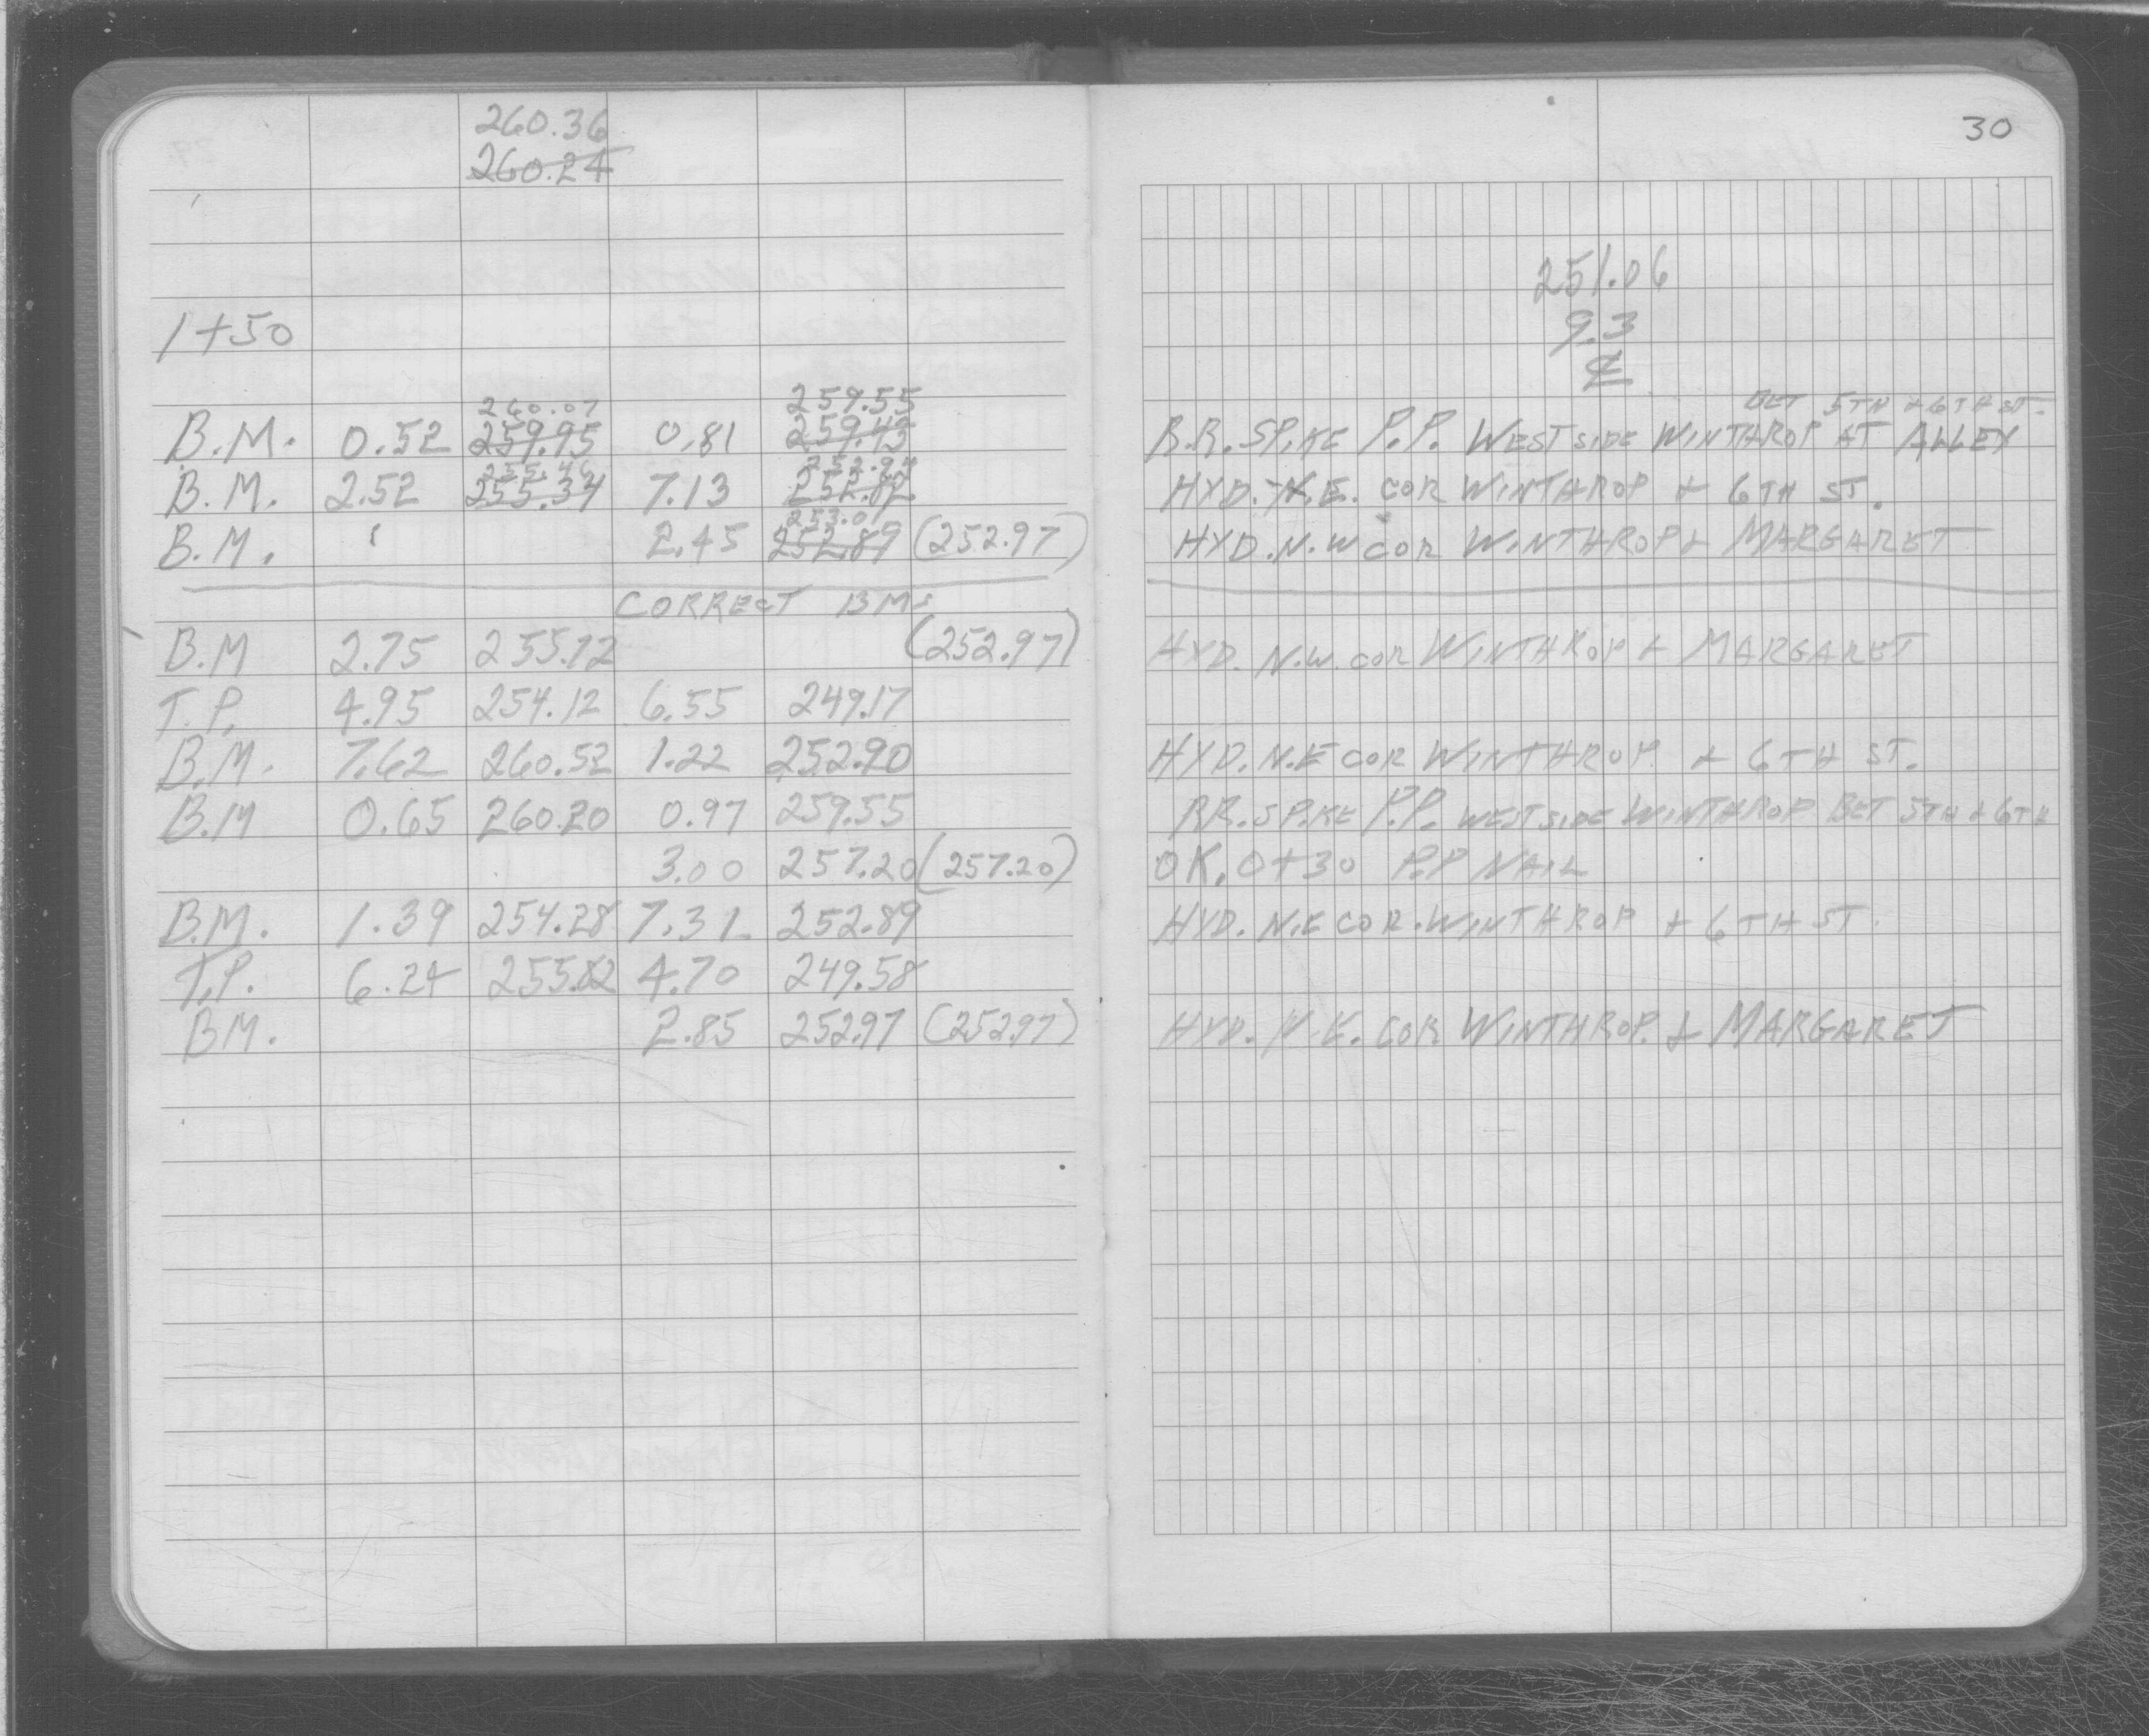 30
260.36
260.24
251.06
1+50 9.3
℄
260.07 259.55 BET 5TH & 6TH ST.
B.M. 0.52 259.95 0.81 259.43 R.R. SPIKE P.P. WEST SIDE WINTHROP AT ALLEY
255.46 252.94
B.M. 2.52 255.34 7.13 252.82 HYD. N.E. COR WINTHROP & 6TH ST.
253.01
B.M. 2.45 252.89 (252.97) HYD. N.W COR WINTHROP & MARGARET
CORRECT BMs
B.M 2.75 255.72 (252.97) HYD. N.W. COR WINTHROP & MARGARET
T.P. 4.95 254.12 6.55 249.17
B.M. 7.62 260.52 1.22 252.90 HYD. N.E COR WINTHROP & 6TH ST.
B.M 0.65 260.20 0.97 259.55 RR. SPIKE P.P. WEST SIDE WINTHROP BET 5TH & 6TH
3.00 257.20 (257.20) OK, 0+30 P.P NAIL
B.M. 1.39 254.28 7.31 252.89 HYD. N.E COR. WINTHROP & 6TH ST.
T.P. 6.24 255.82 4.70 249.58
BM. 2.85 252.97 (252.97) HYD. N.E. COR WINTHROP & MARGARET